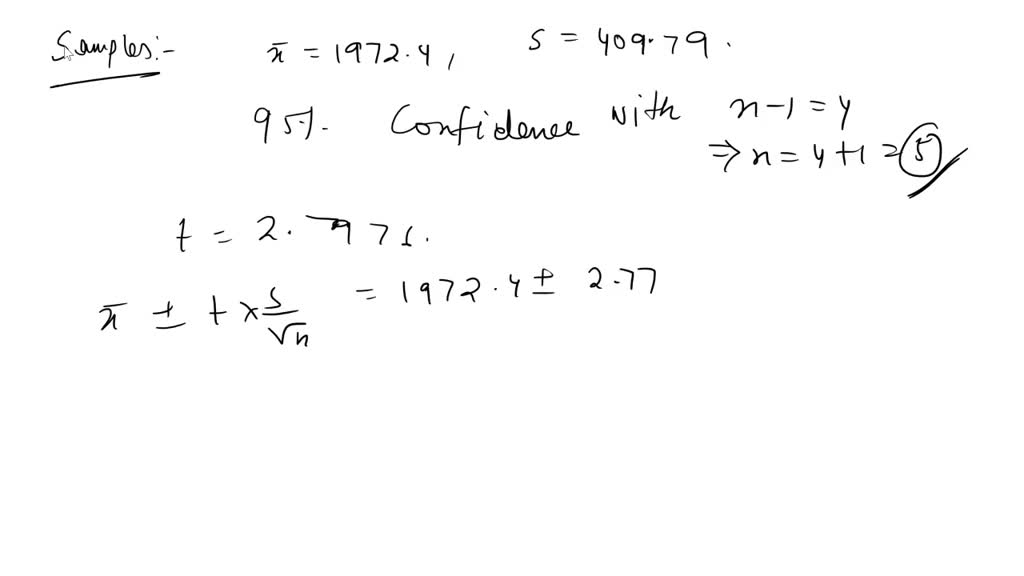 Samples:-
x̄ = 1972.4, s = 409.79.
95%. Confidence with n-1=4
⇒ n = 4+1 = 5
t =
x̄ ± t × s/√n = 1972.4 ± 2.77